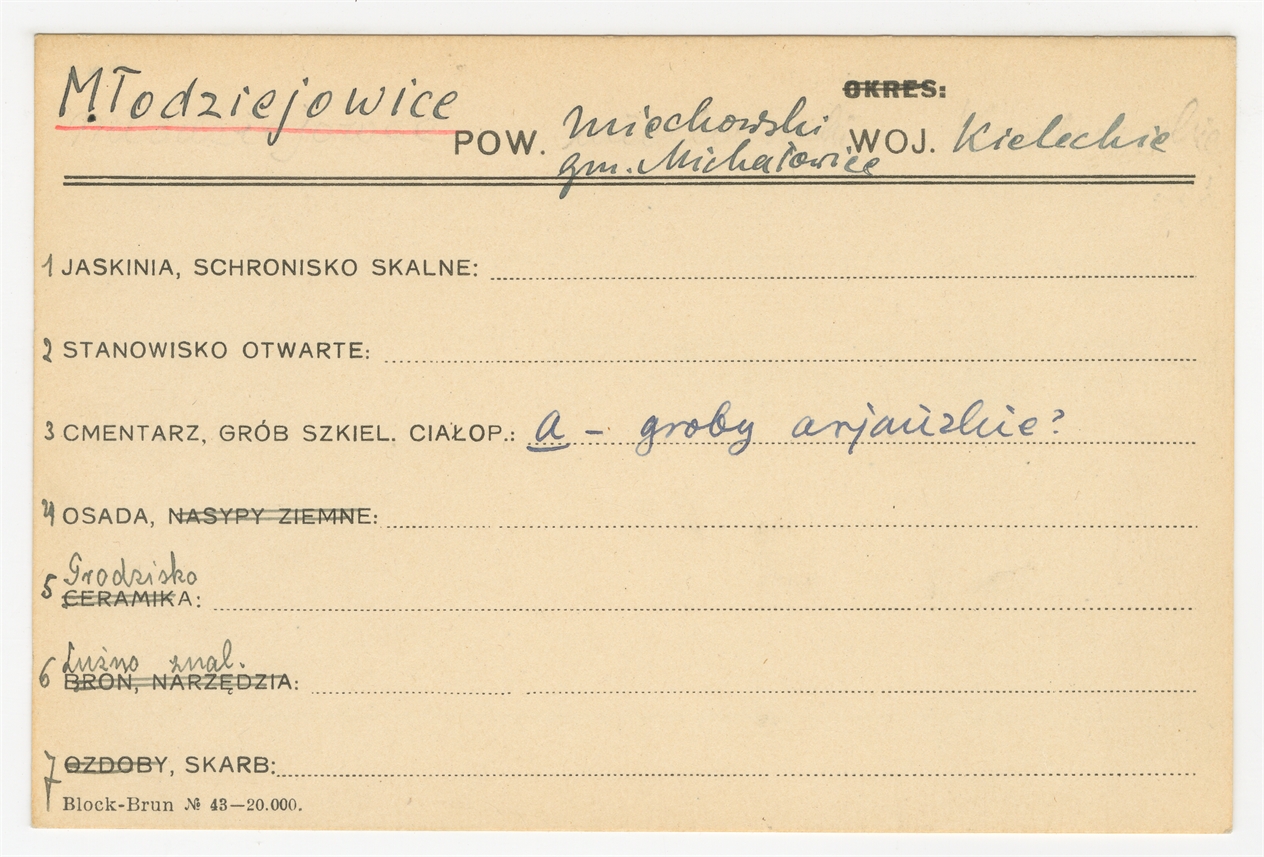 Młodziejowice
OKRES:
POW. miechowski WOJ. Kieleckie
gm. Michałowice
1 JASKINIA, SCHRONISKO SKALNE:
2 STANOWISKO OTWARTE:
3 CMENTARZ, GRÓB SZKIEL. CIAŁOP.: a – groby arjańskie?
4 OSADA, NASYPY ZIEMNE:
Grodzisko
5 CERAMIKA:
Luźno znal.
6 BROŃ, NARZĘDZIA:
7 OZDOBY, SKARB:
Block-Brun № 43—20.000.